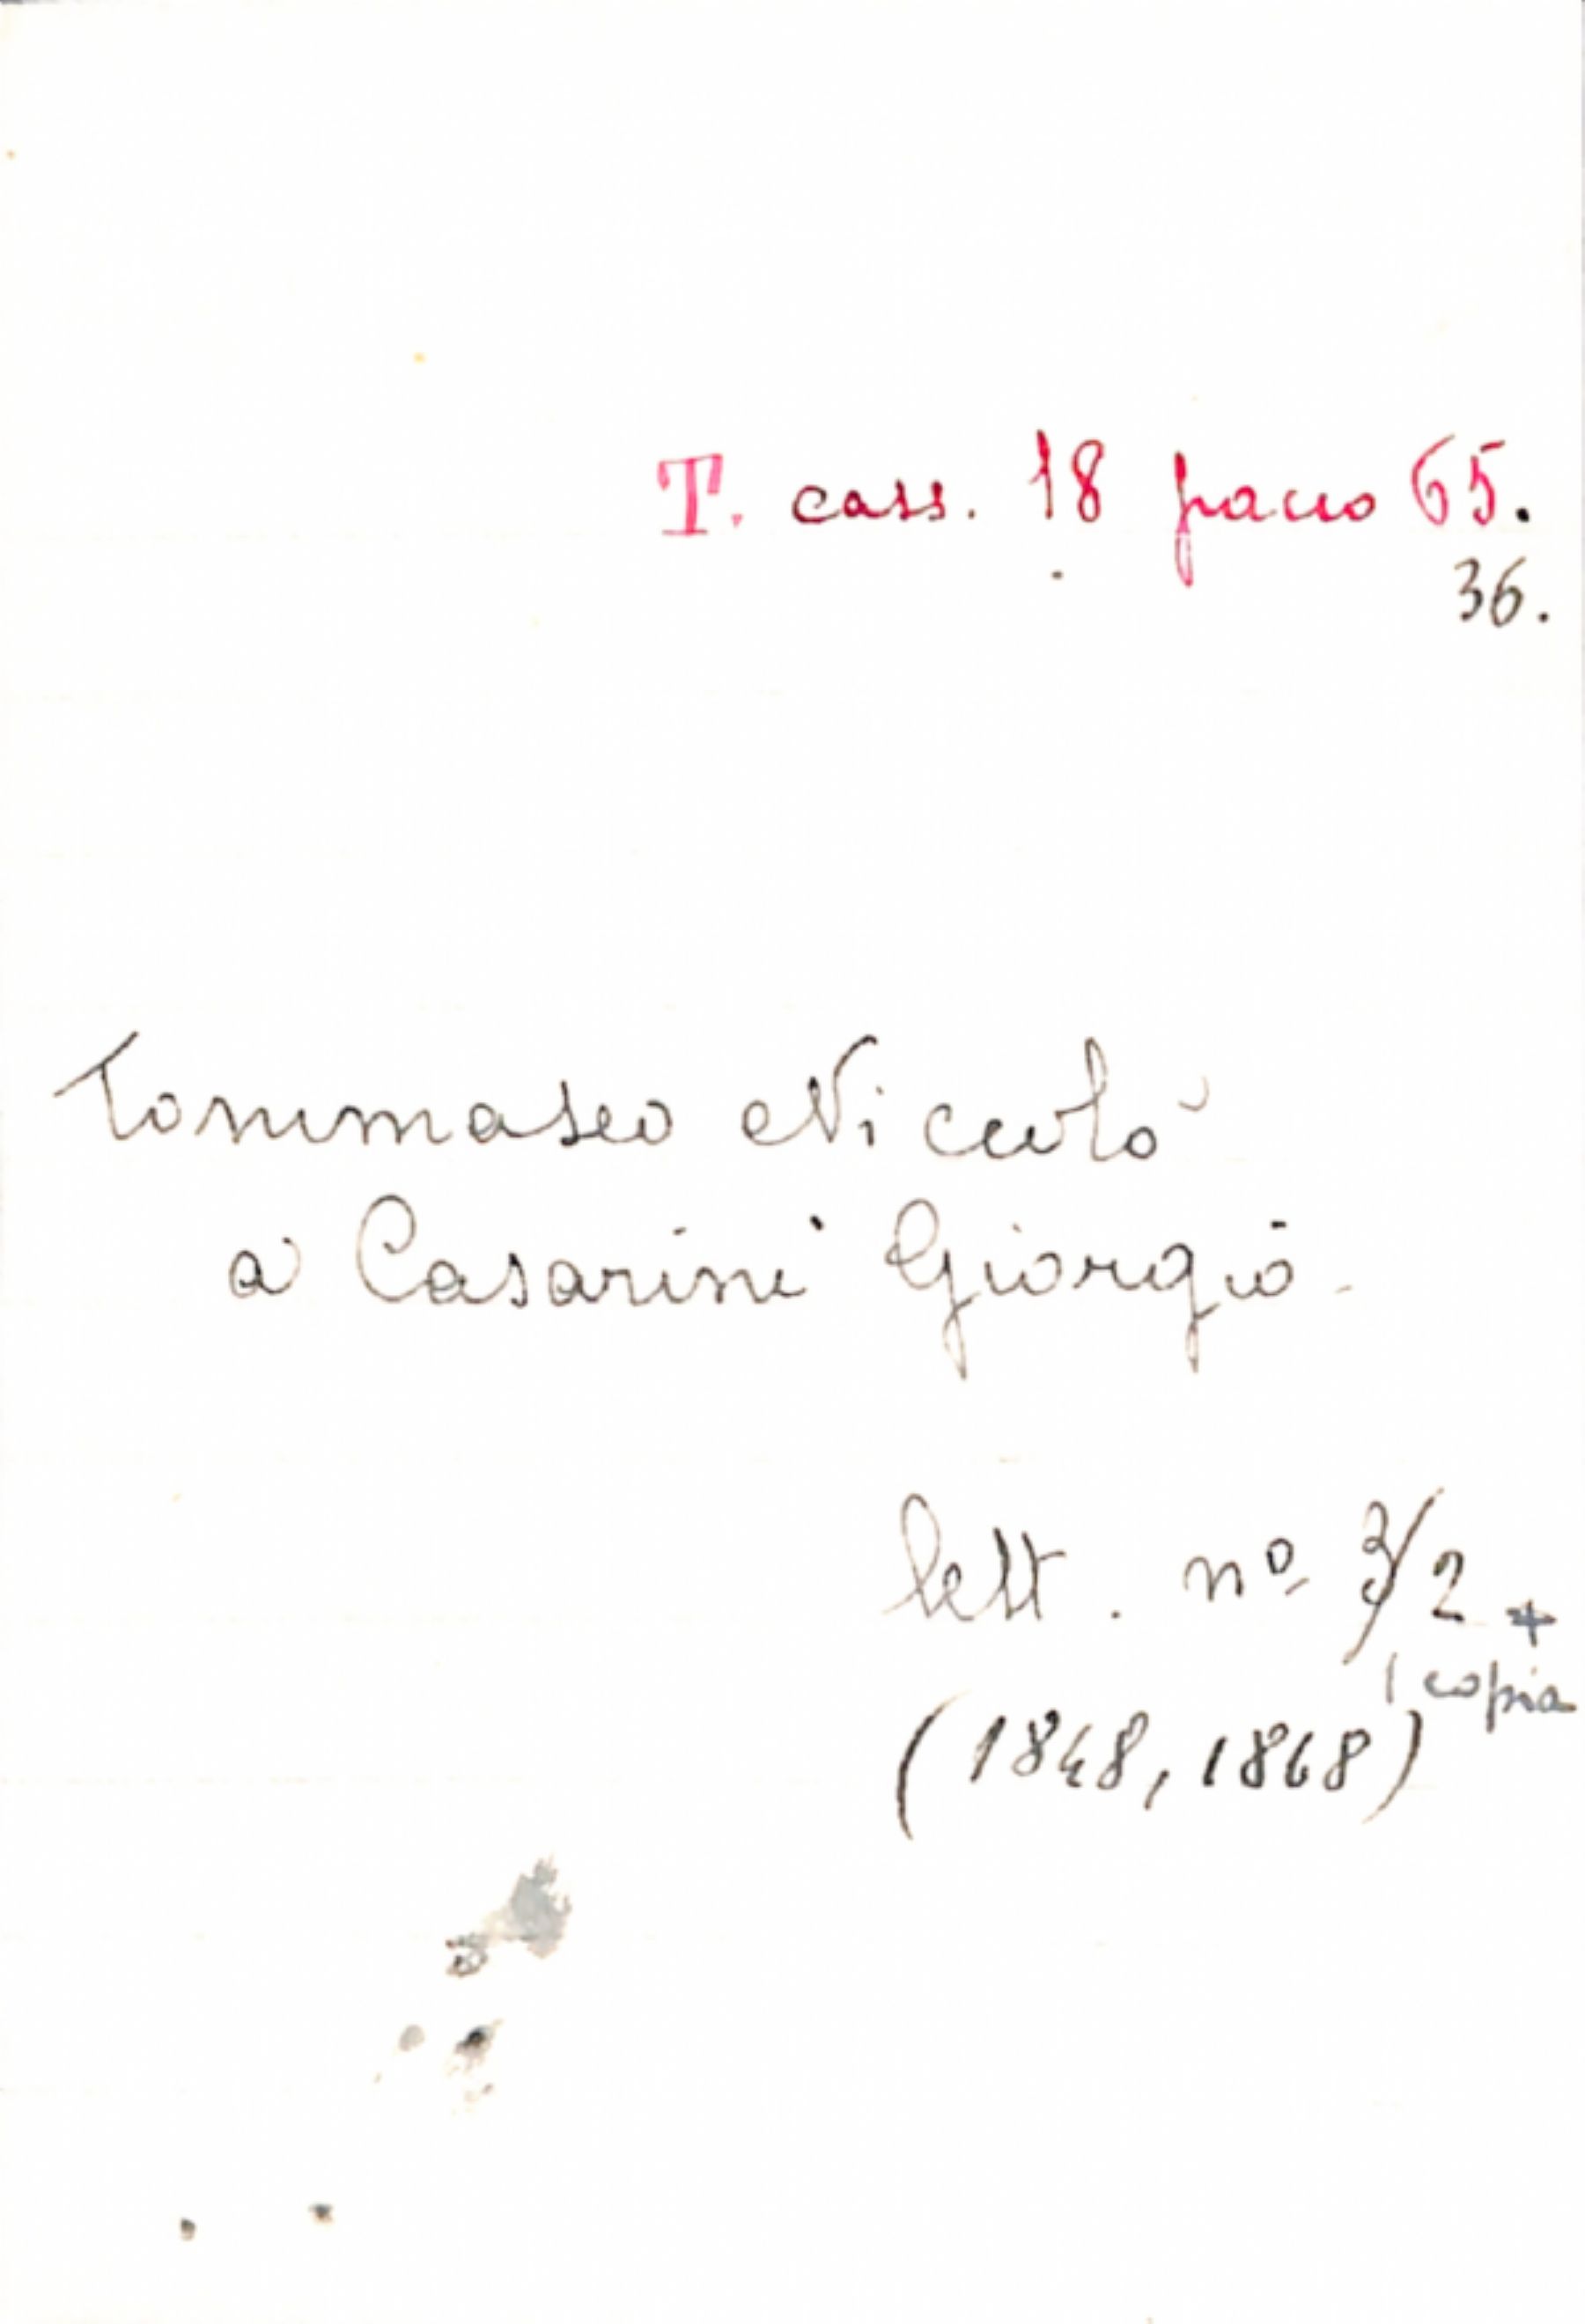 T. cass. 18 pacco 65.
36.
Tommaseo Niccolò
a Casarini Giorgio.
lett. nº 3/2 +
1 copia
(1848, 1868)